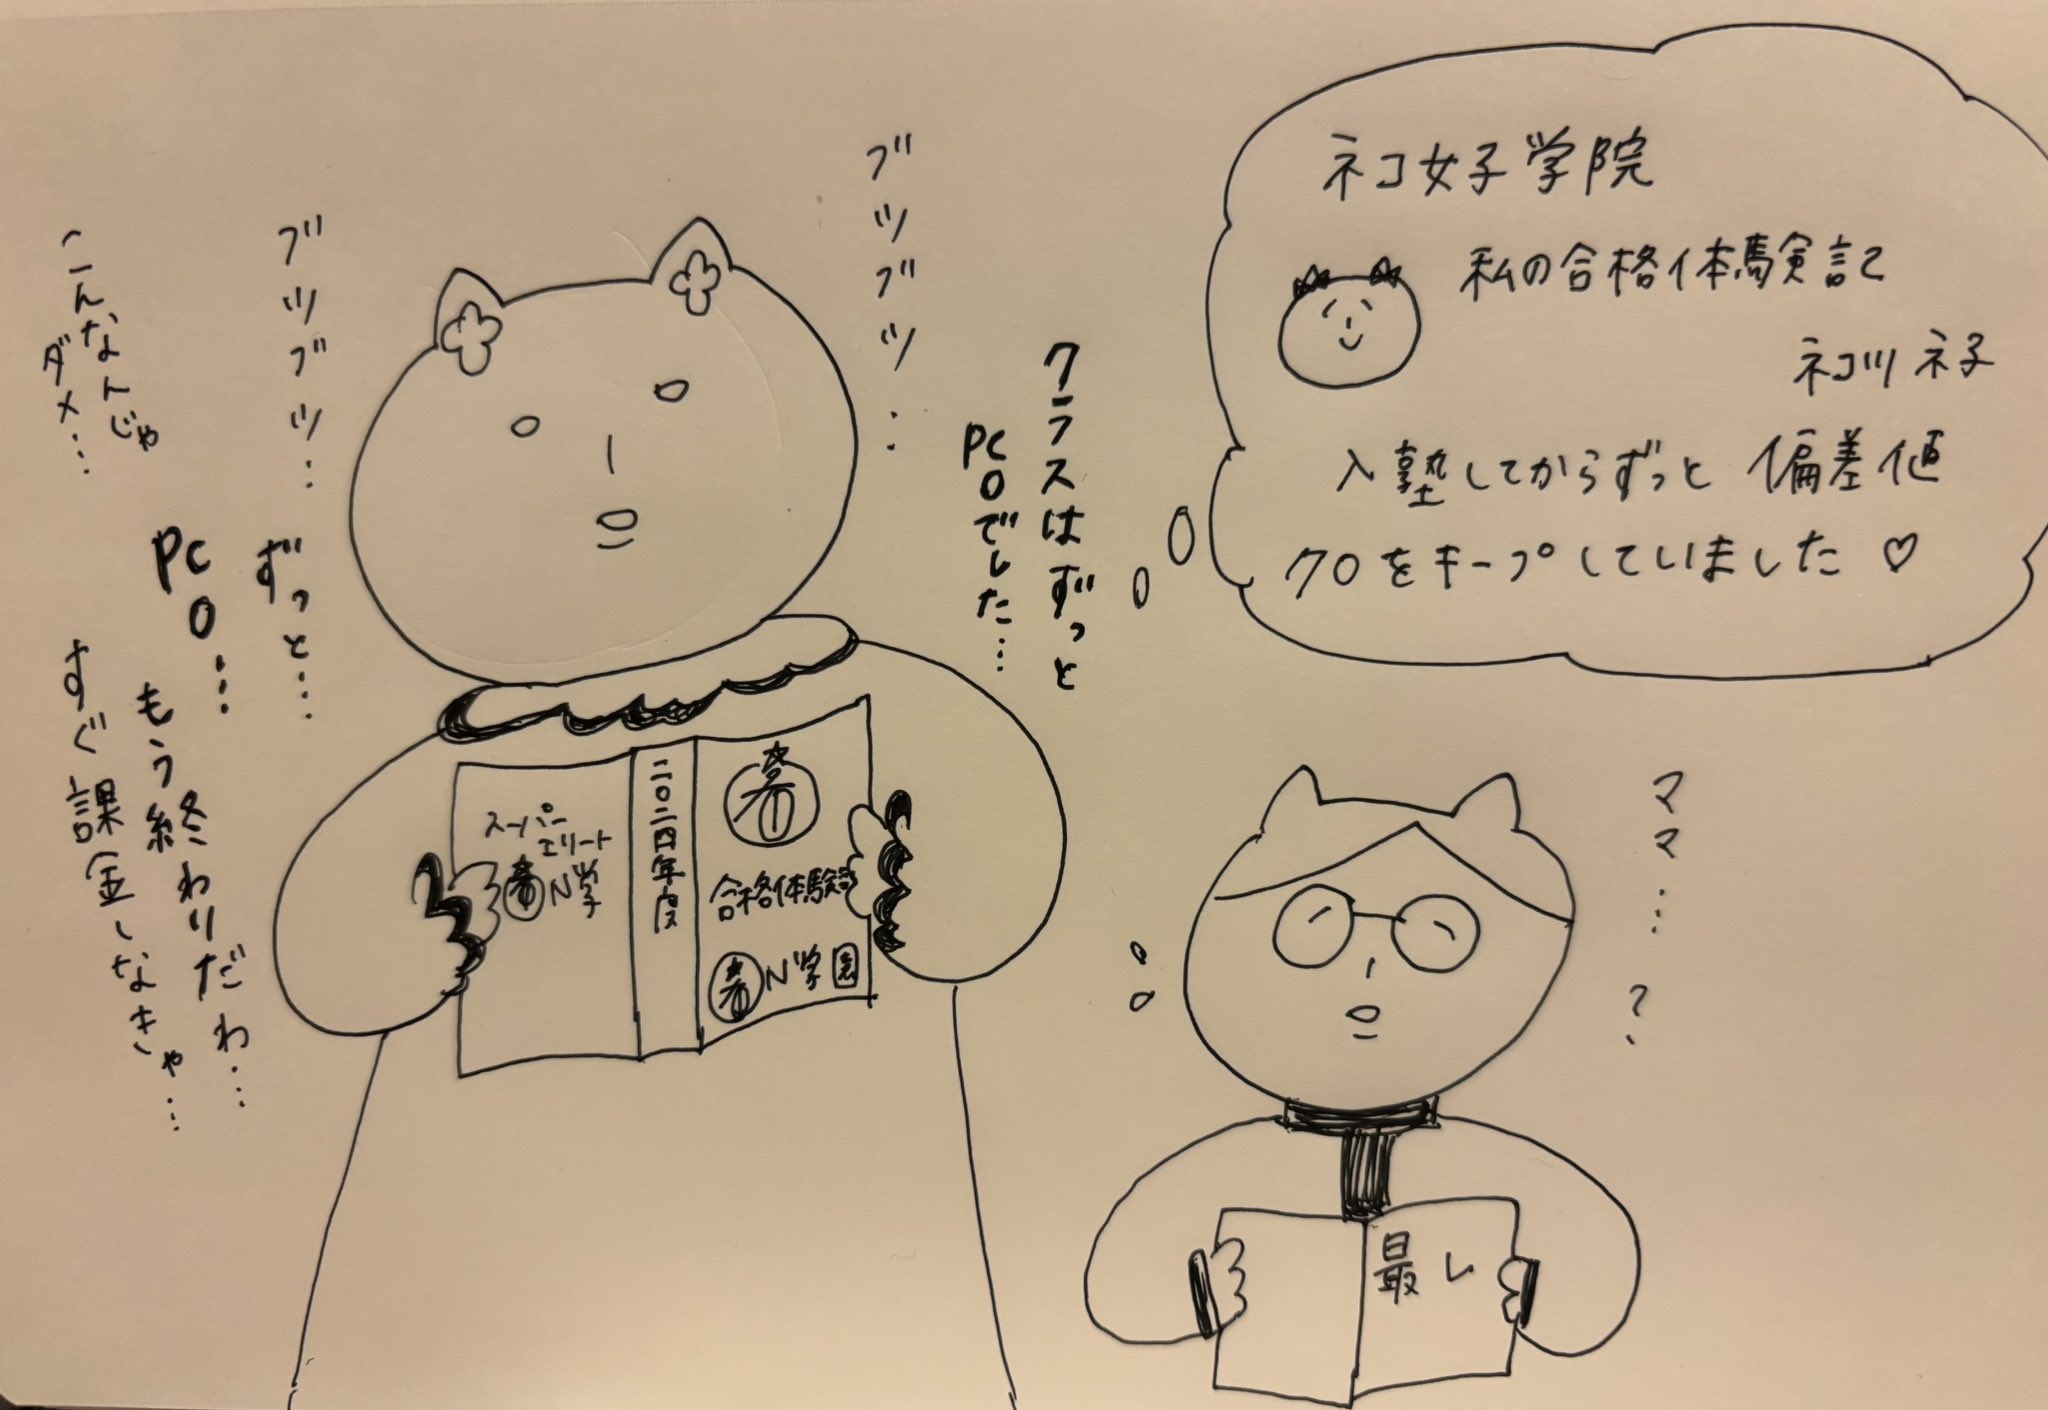 ネコ女子学院
私の合格体験記
ネコツ ネ子
入塾してからずっと 偏差値
70をキープしていました♡
クラスはずっと
PC0でした…
ブツブツ…
ブツブツ…
ずっと…
PC0…
もう終わりだわ…
すぐ課金しなきゃ…
こんなんじゃ
ダメ…
合格体験
N学園
二〇二四年度
スーパー
エリート
N学
ママ…?
最レ